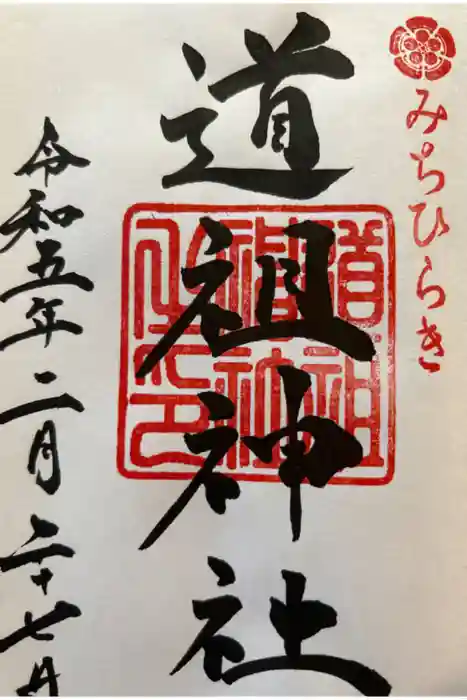 みちひらき
道祖神社
道祖神社之印
令和五年二月二十七日